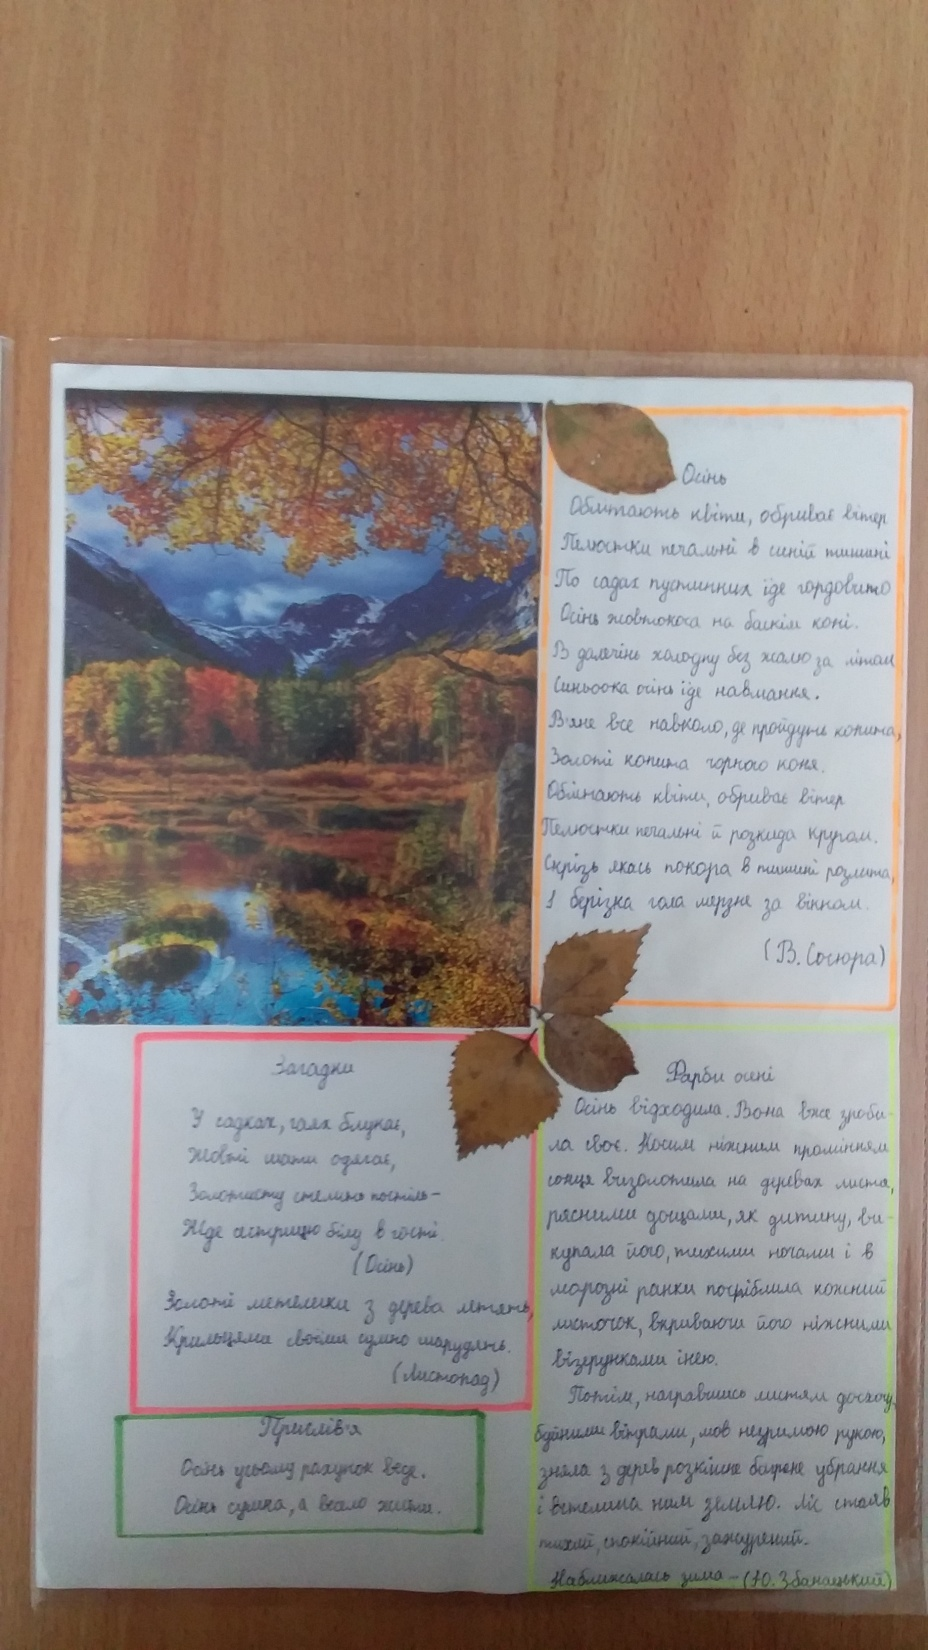 Осінь
Облітають квіти, обриває вітер
Пелюстки печальні в синій тишині
По садах пустинних їде гордовито
Осінь жовтокоса на баскім коні.
В далечінь холодну без жалю за літом
Синьоока осінь їде навмання.
В'яне все навколо, де пройдуть копита,
Золоті копита чорного коня.
Облітають квіти, обриває вітер
Пелюстки печальні й розкида кругом.
Скрізь якась покора в тишині розлита,
І берізка гола мерзне за вікном.
(В. Сосюра)
Загадки
У садках, гаях блукає,
Жовті шати одягає,
Золотисту стелить постіль-
Жде сестрицю білу в гості.
(Осінь)
Золоті метелики з дерева летять,
Крильцями своїми сумно шарудять.
(Листопад)
Прислів'я
Осінь усьому рахунок веде.
Осінь сумна, а весело жити.
Фарби осені
Осінь відходила. Вона вже зроби-
ла своє. Косим ніжним промінням
сонця визолотила на деревах листя,
рясними дощами, як дитину, ви-
купала його, тихими ночами і в
морозні ранки посріблила кожний
листочок, вкриваючи його ніжними
візерунками інею.
Потім, награвшись листям досхочу,
буйними вітрами, мов незримою рукою,
зняла з дерев розкішне багряне убрання
і встелила ним землю. Ліс стояв
тихий, спокійний, зажурений.
Наближалась зима - (Ю. Збанацький)